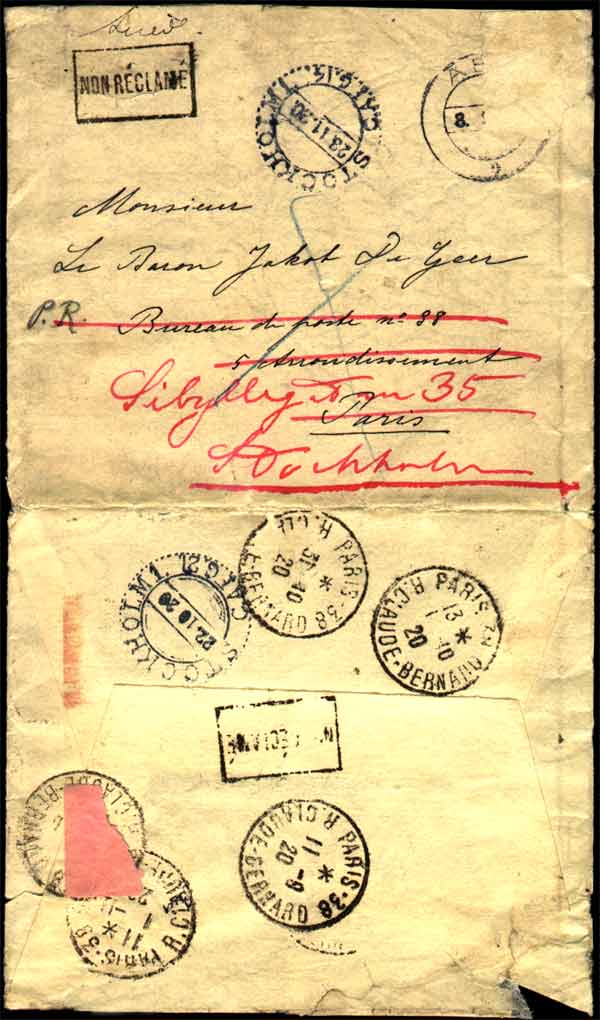 NON RÉCLAMÉ
STOCKHOLM 1. CA.1.G.15
23.11.20
8.
2
Monsieur
Le Baron Jakob De Geer
P.R. Bureau de poste nº 38
5 Arrondissement
Sibyllegatan 35
Paris
Stockholm
PARIS-38 R.CL E-BERNARD
31-10
20
STOCKHOLM 1.
22.10.20
PARIS R.CLAUDE-BERNARD
13 10
20
N RÉCLAMÉ
R.CLAUDE-BERNA
PARIS-38 R.CLAUDE-BERNARD
11-9
20
PARIS-38 R.C
11
1